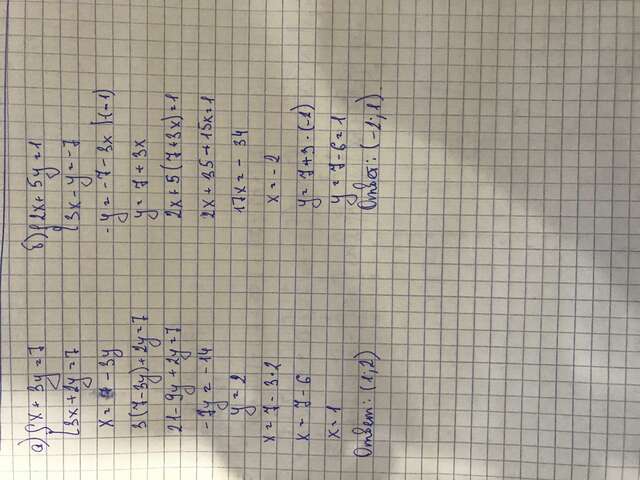 а) { x + 3y = 7
{ 3x + 2y = 7
x = 7 - 3y
3(7 - 3y) + 2y = 7
21 - 9y + 2y = 7
-7y = -14
y = 2
x = 7 - 3·2
x = 7 - 6
x = 1
Ответ: (1; 2)
б) { 2x + 5y = 1
{ 3x - y = -7
-y = -7 - 3x |(-1)
y = 7 + 3x
2x + 5(7 + 3x) = 1
2x + 35 + 15x = 1
17x = -34
x = -2
y = 7 + 3·(-2)
y = 7 - 6 = 1
Ответ: (-2; 1)